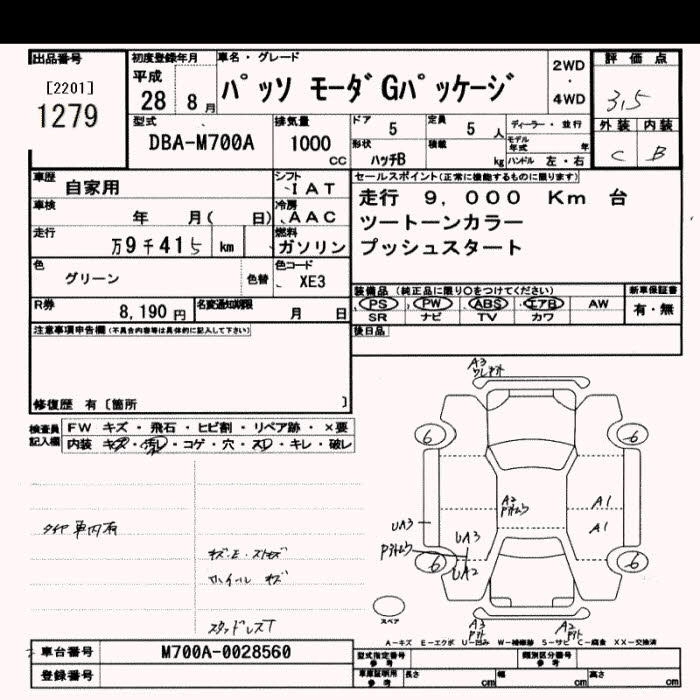 出品番号
[2201]
1279
初度登録年月
平成
28 8 月
車名・グレード
パッソ モーダ Gパッケージ
2WD
・
4WD
評価点
3,5
外装 内装
C B
型式
DBA-M700A
排気量
1000
CC
ドア 5
定員 5 人
形状 ハッチB
積載 kg
ディーラー・並行
モデル年式 年
ハンドル 左・右
車歴 自家用
シフト
IAT
車検
年 月( 日)
冷房
AAC
走行
万9千415 km
燃料
ガソリン
色
グリーン
色替
色コード
XE3
R券
8,190 円
名変通知期限
月 日
セールスポイント(正常に機能するものに限ります)
走行 9,000 Km 台
ツートーンカラー
プッシュスタート
装備品 (純正品に限り○をつけてください)
PS PW ABS エアB AW
SR ナビ TV カワ
新車保証書
有・無
後日品
注意事項申告欄(不具合内容等は具体的に記入して下さい)
修復歴 有 [箇所 ]
検査員
記入欄
FW キズ・飛石・ヒビ割・リペア跡・×要
内装 キズ・汚レ・コゲ・穴・スレ・キレ・破レ
タイヤ車内有
ホイール キズ
スタッドレスT
A3
6
6
A2
A1
A1
UA3
UA3
UA2
6
6
スペア
A3
A3
A-キズ E-エクボ U-凹み W-補修跡 S-サビ C-腐食 XX-交換済
車台番号
M700A-0028560
登録番号
型式指定番号
参考
類別区分番号
参考
車庫証明用
参考
長さ cm
幅 cm
高さ cm